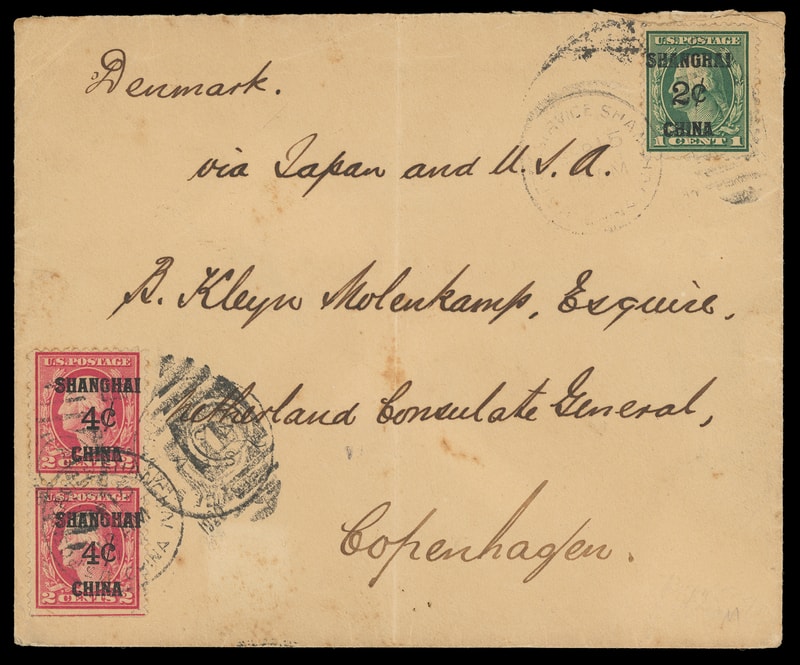 Denmark.
via Japan and U.S.A.
B. Kleyn Molenkamp, Esquire,
Netherland Consulate General,
Copenhagen.
U.S.POSTAGE
SHANGHAI
2¢
CHINA
1 CENT 1
SHANGHAI
U.S.POSTAGE
SHANGHAI
4¢
CHINA
2 CENTS 2
U.S.POSTAGE
SHANGHAI
4¢
CHINA
2 CENTS 2
SHANGHAI
CHINA